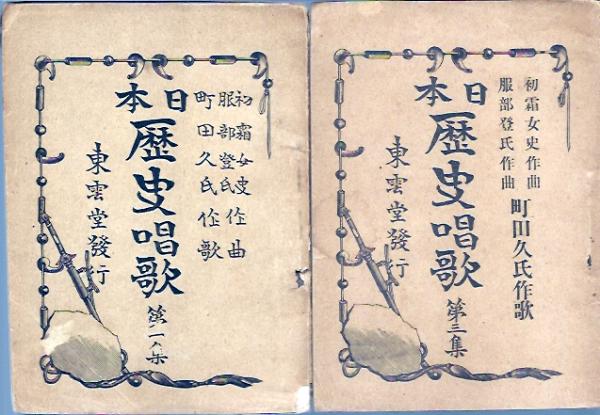 初霜女史作曲
服部登氏作曲
町田久氏作歌
日本
歴史唱歌
東雲堂發行
初霜女史作曲
服部登氏作曲
町田久氏作歌
日本
歴史唱歌
第三集
東雲堂發行